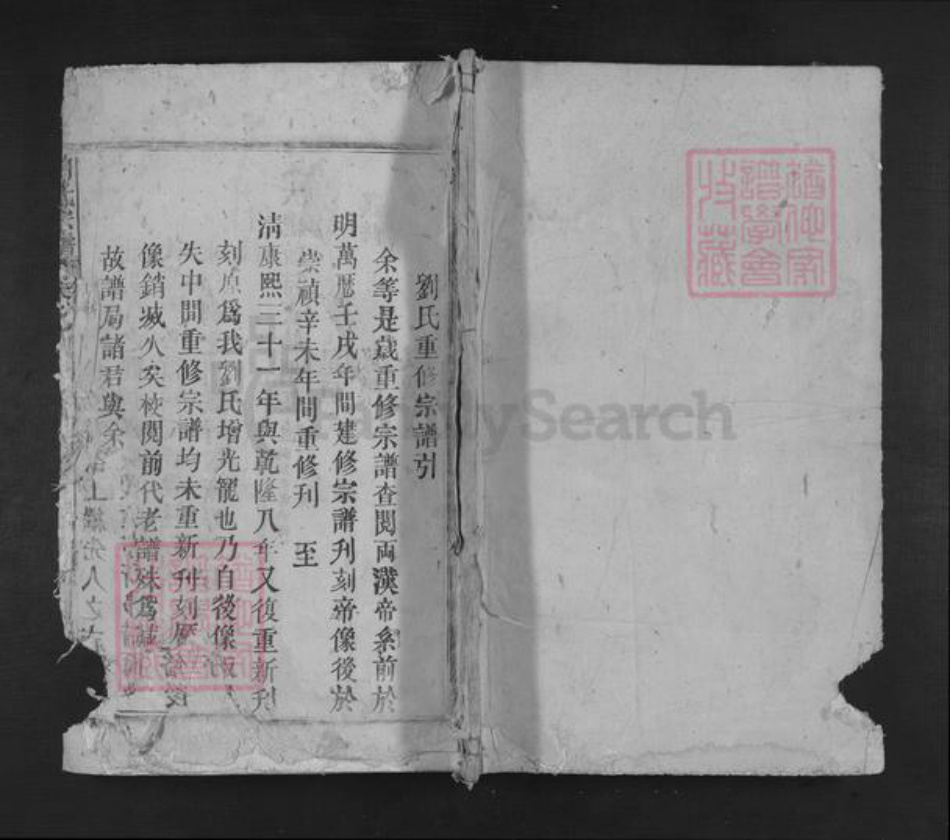 劉氏重修宗譜引
余等是歲重修宗譜查閱両漢帝系前於
明萬曆壬戌年間建修宗譜刊刻帝像後於
崇禎辛未年間重修刋　至
清康熙三十一年與乾隆八年又復重新刋
刻原爲我劉氏增光寵也乃自後像
失中間重修宗譜均未重新刋刻
像銷滅久矣校閱前代老譜殊爲
故譜局諸君與余
ySearch